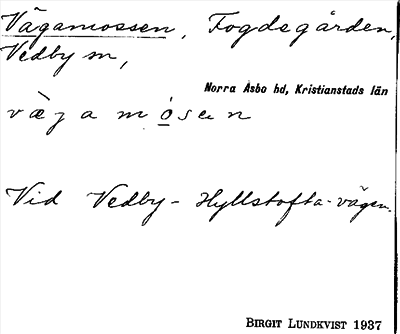 Vägamossen, Fogdegården,
Vedby sn,
Norra Åsbo hd, Kristianstads län
væga mosen
Vid Vedby - Hyllstofta-vägen.
BIRGIT LUNDKVIST 1937